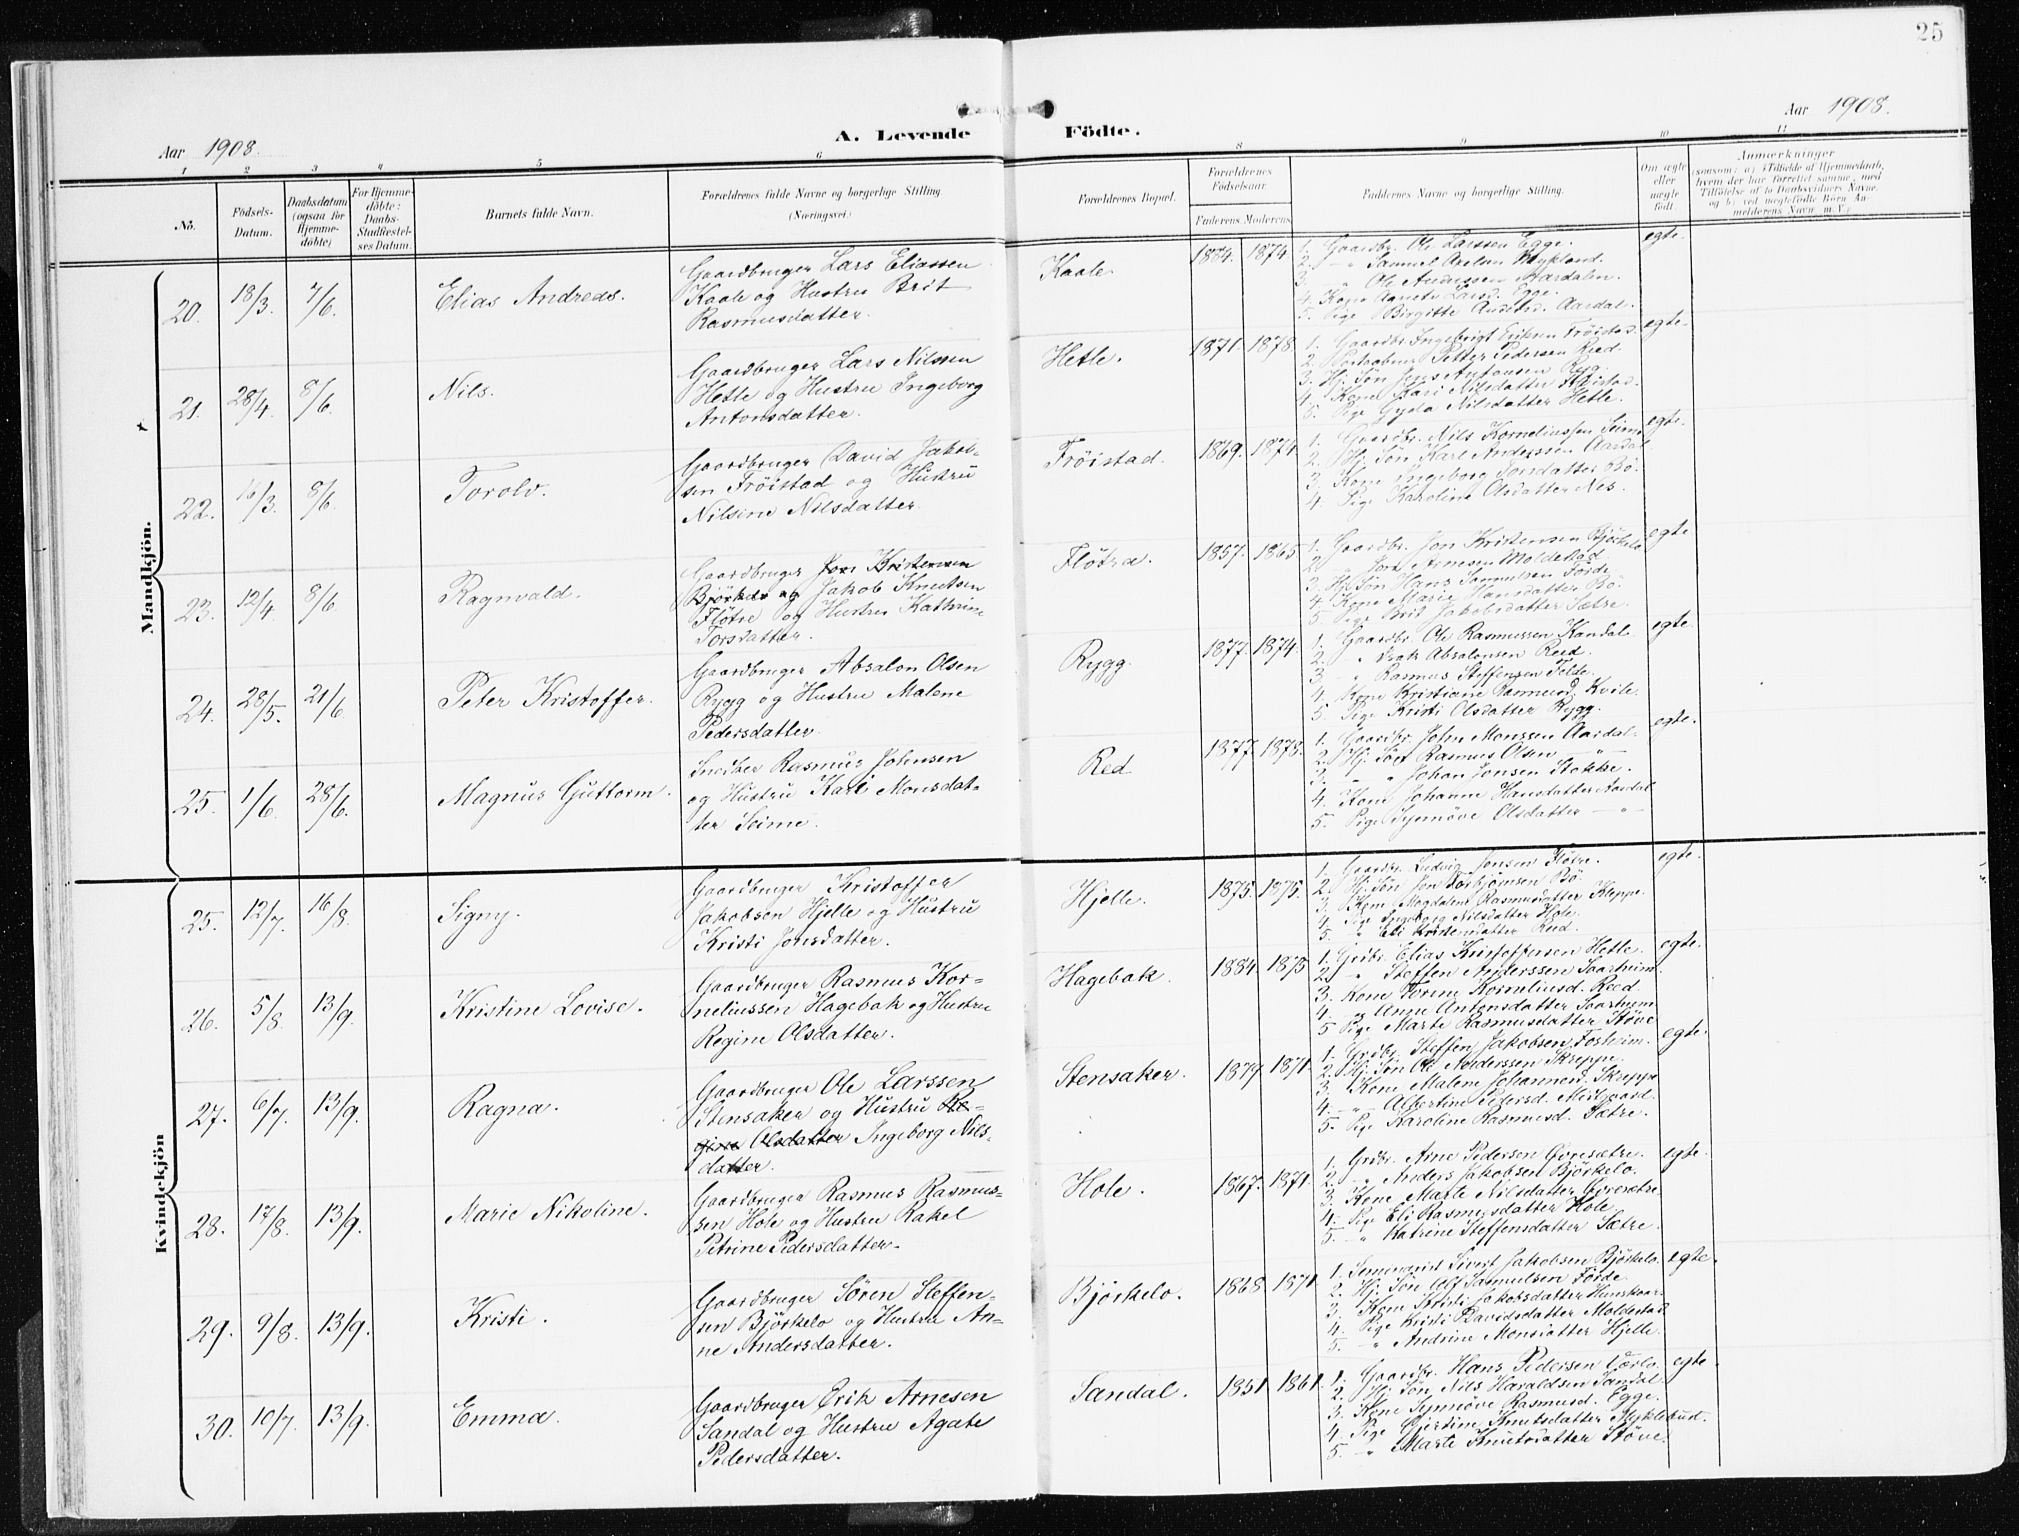 25
Aar 1908.
A. Levende
Födte.
Aar 1908.
1 2 3 4 5 6 8 9 10 11
No.
Födsels-
Datum.
Daabsdatum
(ogsaa for
Hjemme-
döbte)
For Hjemme-
döbte:
Daabs-
Stadfæstel-
ses Datum.
Barnets fulde Navn.
Forældrenes fulde Navne og borgerlige Stilling.
(Næringsvei.)
Forældrenes Bopæl.
Forældrenes
Födselsaar
Faderens. Moderens.
Faddernes Navne og borgerlige Stilling.
Om ægte
eller
uægte
født.
Anmærkninger
Mandkjön.
20. 18/3 7/6. Elias Andreas.
Gaardbruger Lars Eliassen
Kaale og Hustru Brit
Rasmusdatter.
Kaale. 1884. 1874
1. Gaardbr. Ole Larssen Egge.
3. " Ole Anderssen Aardalen.
4. Kone Agnete Larsd. Egge.
5. Pige Birgitte Andersd. Aardal.
egte.
21. 28/4 8/6 Nils.
Gaardbruger Lars Nilssen
Hetle og Hustru Ingeborg
Antonsdatter.
Hetle. 1871. 1878.
1. Gaardbr. Ingebrigt Eriksen Fröistad.
2. Petter Pedersen Reed.
3. Hj. Søn Jens Antonsen Ryg.
4. Kone Kari Nilsdatter Fröistad.
5. Pige Gyda Nilsdatter Hetle.
egte.
22. 16/3. 8/6 Torolv.
Gaardbruger David Jakob-
sen Fröistad og Hustru
Nilsine Nilsdatter.
Fröistad. 1869. 1874
1. Gaardbr. Nils Korneliussen Seime
2. Hj. Søn Karl Anderssen Aardal
3. Kone Ingeborg Jonsdatter Bö.
4. Pige Karoline Olsdatter Nes.
egte.
23. 12/4. 8/6 Ragnvald.
Gaardbruger Jon Kristensen
Björkelo og Jakob Knutsen
Flötre og Hustru Kathrine
Torsdatter.
Flötra. 1857. 1865
1. Gaardbr. Jon Kristensen Björkelo
2. " Arnesen Moldestad
3. Hj. Søn Hans Samuelsen Förde.
4. Kone Marie Hansdatter Bö.
5. Pige Brit Jakobsdatter Sætre.
egte
24. 28/5. 21/6 Peter Kristoffer.
Gaardbruger Absalon Olsen
Rygg og Hustru Malene
Pedersdatter.
Rygg. 1877. 1874.
1. Gaardbr. Ole Rasmussen Kandal.
2. " Isak Absalonsen Reed.
3. " Rasmus Steffensen Felde.
4. Kone Kristiane Rasmusd. Kvile.
5. Pige Kristi Olsdatter Rygg.
egte.
25. 1/6 28/6. Magnus Guttorm.
Snedker Rasmus Johnsen
og Hustru Kari Monsdat-
ter Seime.
Red 1877. 1873.
1. Gaardbr. John Monssen Aardal.
2. Hj. Søn Rasmus Olsen — " —
3. " Johan Jonsen Stokke.
4. Kone Johanne Hansdatter Aardal
5. Pige Synnöve Olsdatter — " —
egte.
Kvindekjön
25. 12/7. 16/8. Signy.
Gaardbruger Kristoffer
Jakobsen Hjelle og Hustru
Kristi Jonsdatter.
Hjelle. 1875. 1875.
1. Gaardbr. Ludvig Jonsen Flötre.
2. Hj. Søn Jon Torbjörnsen Bö.
3. Kone Magdalene Rasmusdatter Kleppe.
4. Pige Ingeborg Nilsdatter Hole.
5. " Eli Kristensdatter Reed.
egte.
26. 5/8. 13/9. Kristine Lovise.
Gaardbruger Rasmus Kor-
neliussen Hagebak og Hustru
Regine Olsdatter.
Hagebak. 1884. 1875
1. Grdbr. Elias Kristoffersen Hetle.
2. " Steffen Anderssen Saarheim.
3. Kone Torine Korneliusd. Reed.
4. " Anne Antonsdatter Saarheim
5. Pige Marte Rasmusdatter Stöve
egte.
27. 6/7. 13/9. Ragna.
Gaardbruger Ole Larssen
Stensaker og Hustru Re-
gine Olsdatter Ingeborg Nils-
datter.
Stensaker. 1879. 1871.
1. Grdbr. Steffen Jakobsen Fosheim.
2. Hj. Søn Ole Anderssen Skreppe.
3. Kone Malene Johannesd. Skreppe
4. — " — Albertine Pedersd. Myrgaard.
5. Pige Karoline Rasmusd. Sætre.
egte.
28. 17/8. 13/9. Marie Nikoline.
Gaardbruger Rasmus Rasmus-
sen Hole og Hustru Rakel
Petrine Pedersdatter.
Hole. 1867. 1871.
1. Grdbr. Arne Pedersen Övresætre.
2. " Anders Jakobsen Björkelo.
3. Kone Marte Nilsdatter Övresætre.
4. Pige Eli Rasmusdatter Hole.
5. — " Katrine Steffensdatter Sætre.
egte.
29. 9/8. 13/9. Kristi.
Gaardbruger Sören Steffen-
sen Björkelo og Hustru An-
ne Andersdatter.
Björkelo. 1868. 1871.
1. Seminarist Sivert Jakobsen Björkelo.
2. Hj. Søn Olf Samuelsen Förde.
3. Kone Kristi Jakobsdatter Hunskaar.
4. Pige Kristi Davidsdatter Moldestad
5. — " Andrine Monsdatter Hjelle.
egte.
30. 10/7. 13/9. Emma.
Gaardbruger Erik Arnesen
Sandal og Hustru Agate
Pedersdatter.
Sandal. 1851. 1861.
1. Gaardbr. Hans Pedersen Værlo.
2. Hj. Søn Nils Haraldsen Sandal
3. Kone Synnöve Rasmusd. Egge.
4. Pige Gjertine Knutsdatter Myklebust.
5. — " Marte Knutsdatter Stöve.
egte.